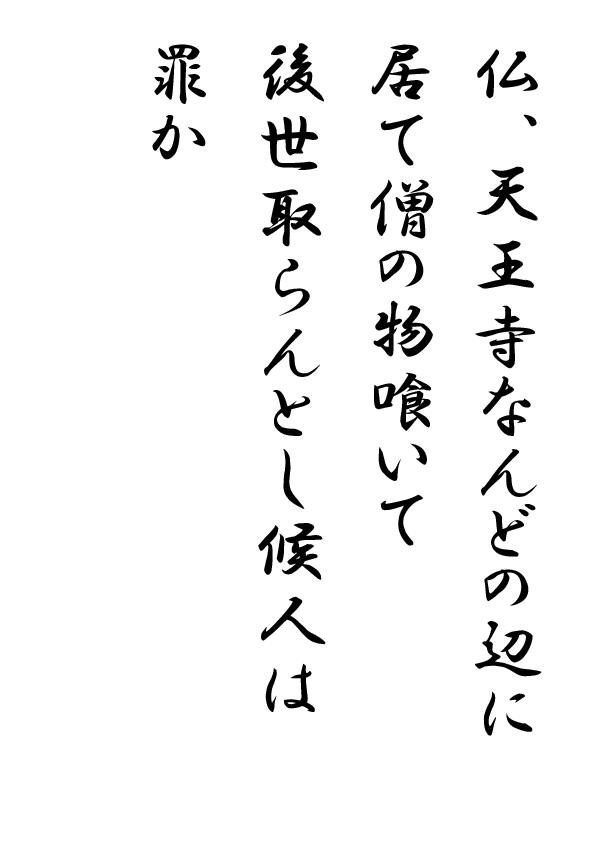 仏、天王寺なんどの辺に
居て僧の物喰いて
後世取らんとし候人は
罪か